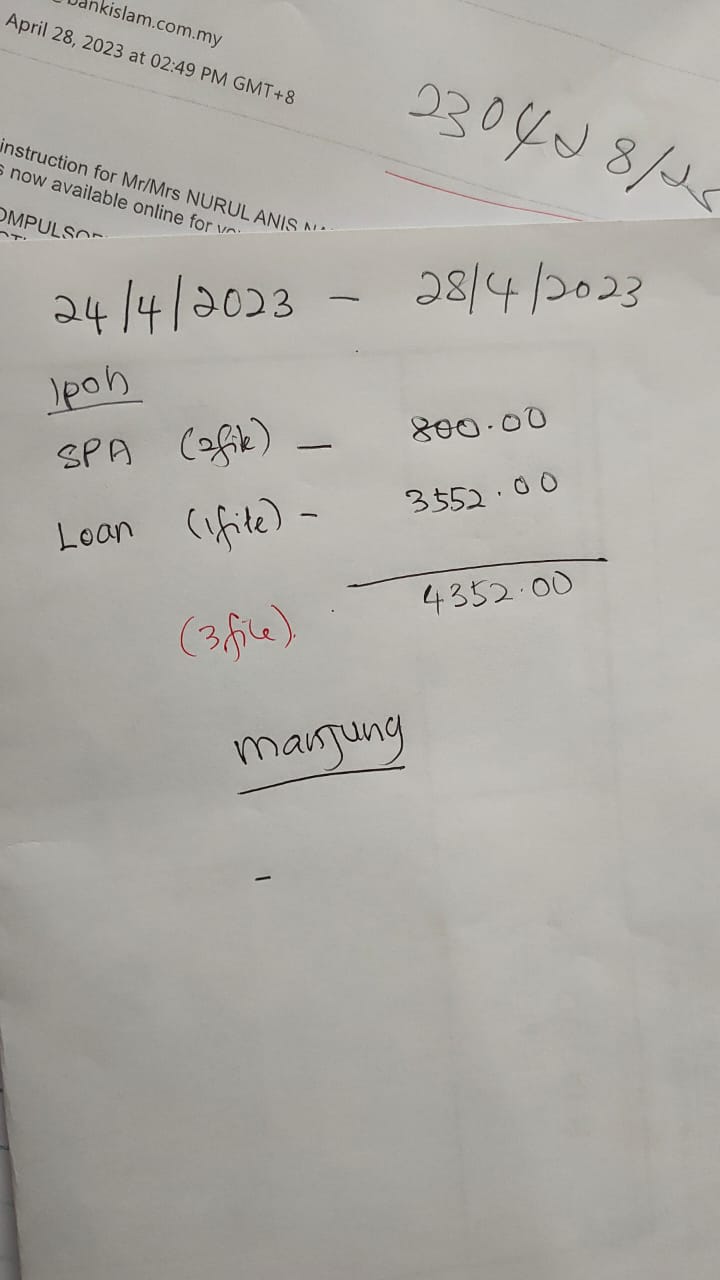 bankislam.com.my
April 28, 2023 at 02:49 PM GMT+8
instruction for Mr/Mrs NURUL ANIS
now available online for
24/4/2023 - 28/4/2023
Ipoh
SPA (2file) - 800.00
Loan (1file) - 3552.00
4352.00
(3file).
manjung
-